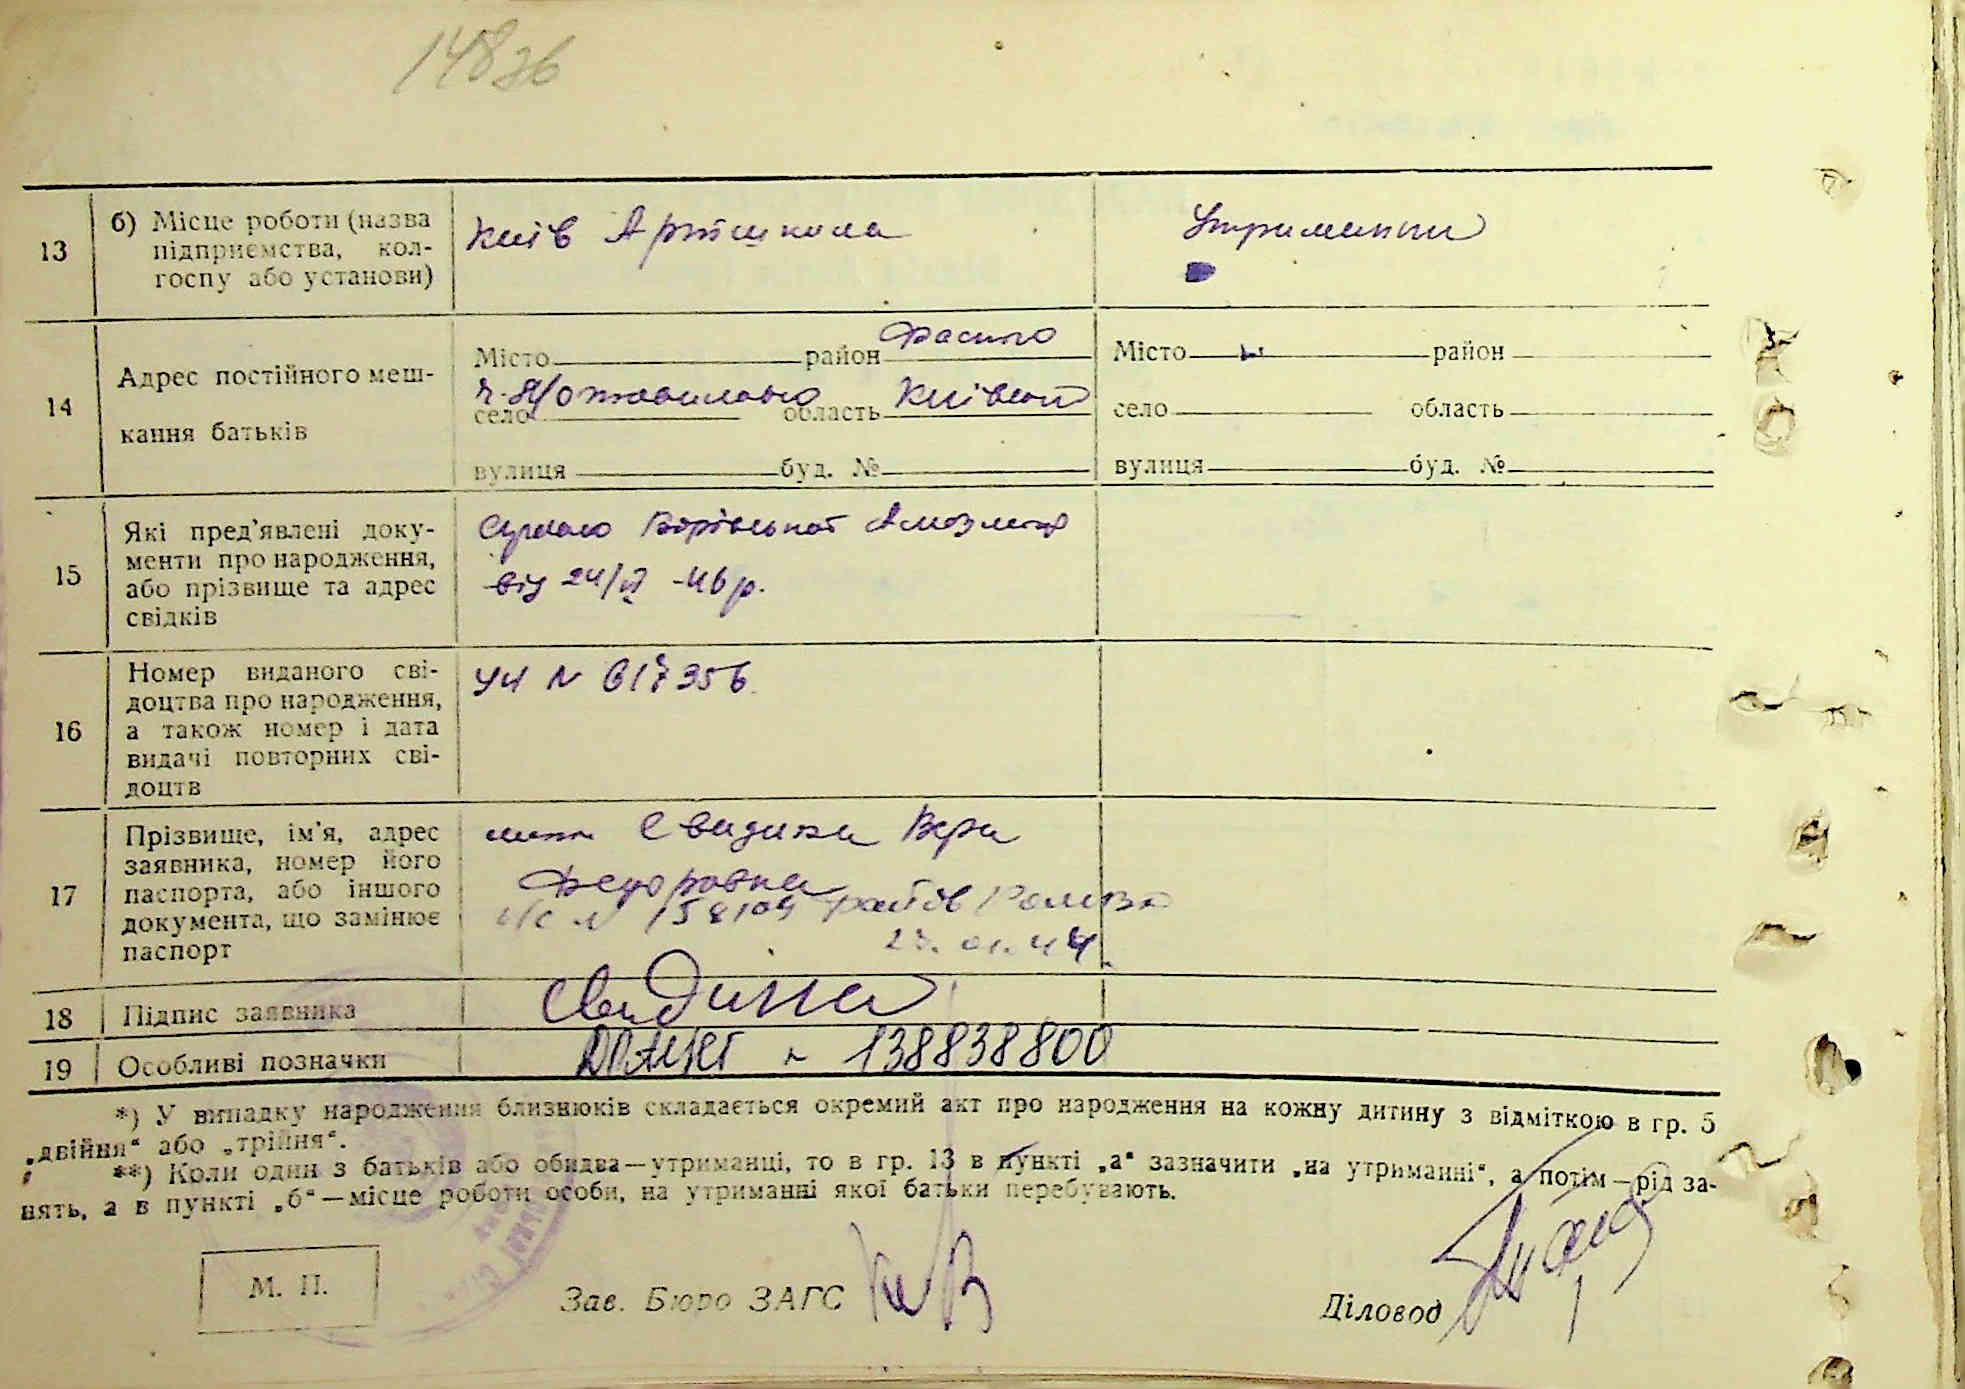 148зв
13
б) Місце роботи (назва
підприємства, кол-
госпу або установи)
Київ Артшкола
Утриманні
14
Адрес постійного меш-
кання батьків
Місто район
село область Київської
вулиця буд. №
Місто район
село область
вулиця буд. №
15
Які пред'явлені доку-
менти про народження,
або прізвище та адрес
свідків
від 24/VI -46 р.
16
Номер виданого сві-
доцтва про народження,
а також номер і дата
видачі повторних сві-
доцтв
УЧ N 617356
17
Прізвище, ім'я, адрес
заявника, номер його
паспорта, або іншого
документа, що замінює
паспорт
Свидина Вера
Федоровна
п/с N 158109
23.01.44
18
Підпис заявника
Свидина
19
Особливі позначки
138838800
*) У випадку народження близнюків складається окремий акт про народження на кожну дитину з відміткою в гр. 5
„двійня“ або „трійня“.
**) Коли один з батьків або обидва—утриманці, то в гр. 13 в пункті „а“ зазначити „на утриманні“, а потім—рід за-
нять, а в пункті „б“—місце роботи особи, на утриманні якої батьки перебувають.
М. П.
Зав. Бюро ЗАГС
Діловод